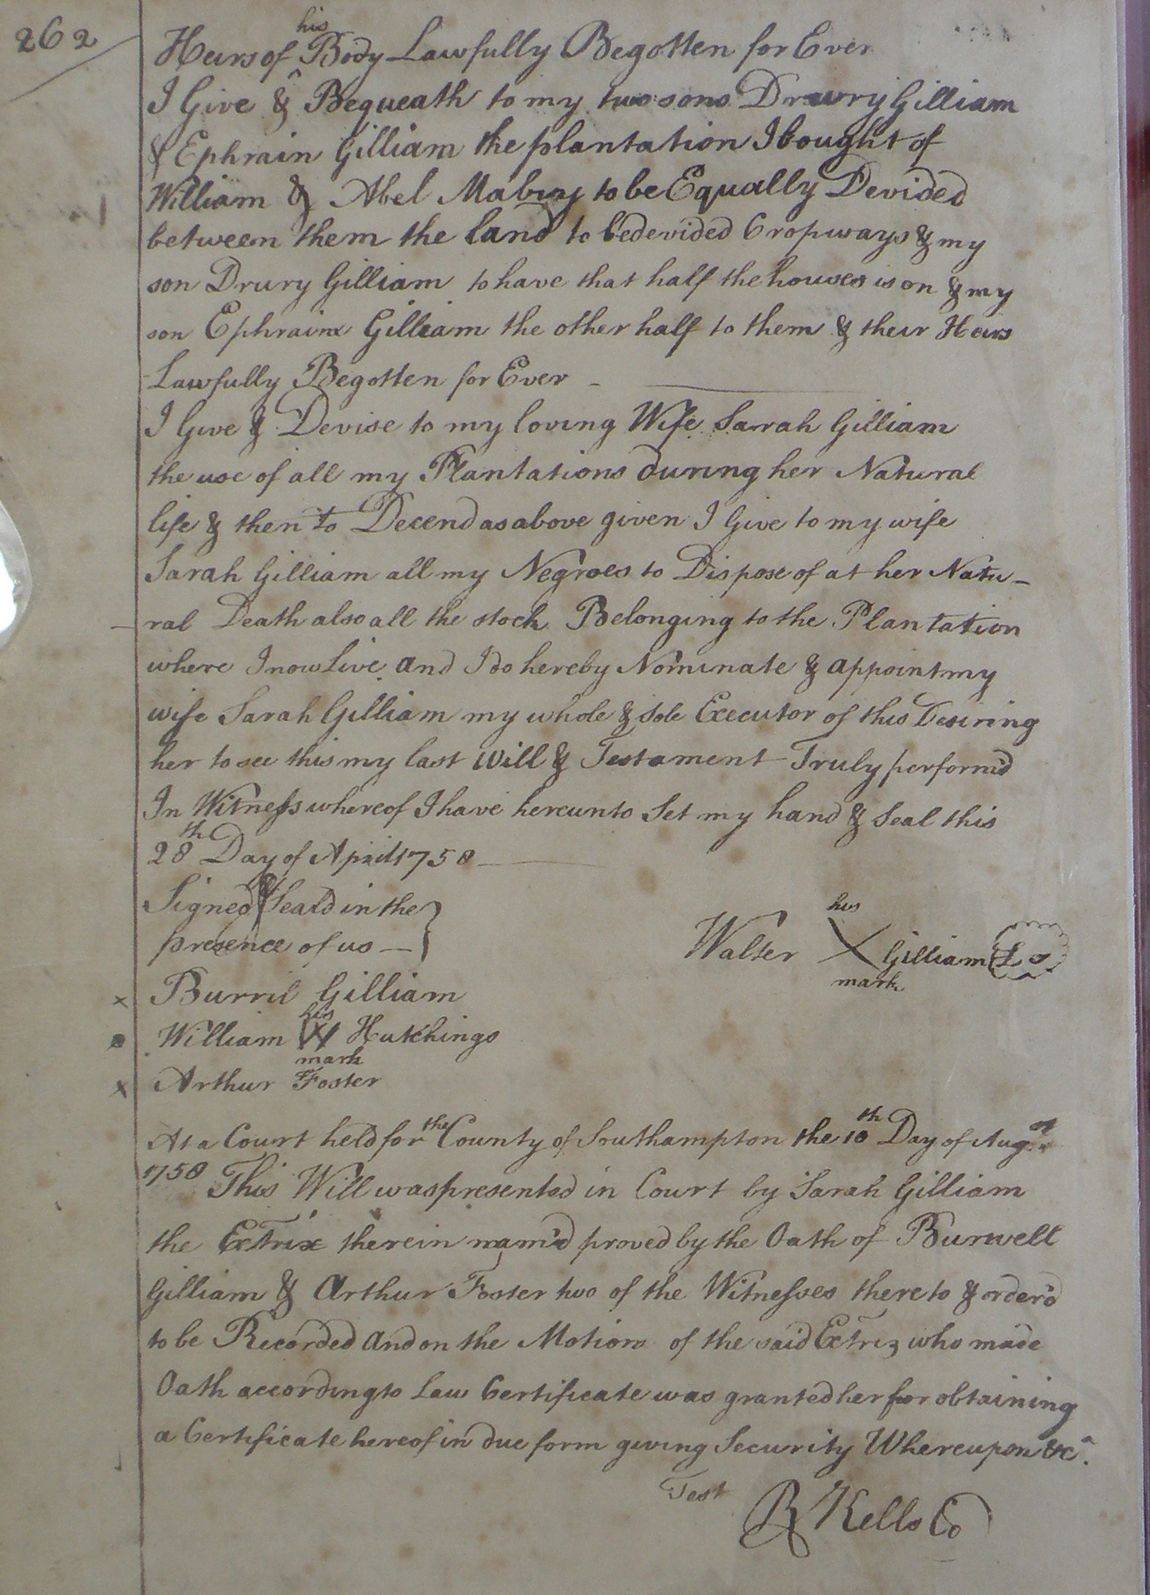 262
Heirs of his Body Lawfully Begotten for Ever
I Give & Bequeath to my two sons Drewry Gilliam
& Ephraim Gilliam the plantation I bought of
William & Abel Mabry to be Equally Devided
between them the land to be devided Cropways & my
son Drury Gilliam to have that half the houses is on & my
son Ephraim Gilliam the other half to them & their Heirs
Lawfully Begotten for Ever
I Give & Devise to my loving Wife Sarrah Gilliam
the use of all my Plantations during her Natural
life & then to Decend as above given I Give to my wife
Sarah Gilliam all my Negroes to Dispose of at her Natu-
ral Death also all the stock Belonging to the Plantation
where I now Live and I do hereby Nominate & appoint my
wife Sarah Gilliam my whole & sole Executor of this Desiring
her to see this my last Will & Testament Truly perform'd
In Witness whereof I have hereunto Set my hand & Seal this
28th Day of April 1758
Signed & Seal'd in the
presence of us
Walter his X mark Gilliam L S
x Burril Gilliam
William his W mark Hutchings
x Arthur Foster
At a Court held for the County of Southampton the 10th Day of Augst
1758 This Will was presented in Court by Sarah Gilliam
the Extrix therein nam'd proved by the Oath of Burwell
Gilliam & Arthur Foster two of the Witnesses thereto & order'd
to be Recorded And on the Motion of the said Extrix who made
Oath according to Law Certificate was granted her for obtaining
a Certificate hereof in due form giving Security Whereupon &c.
Test
R Kello Co